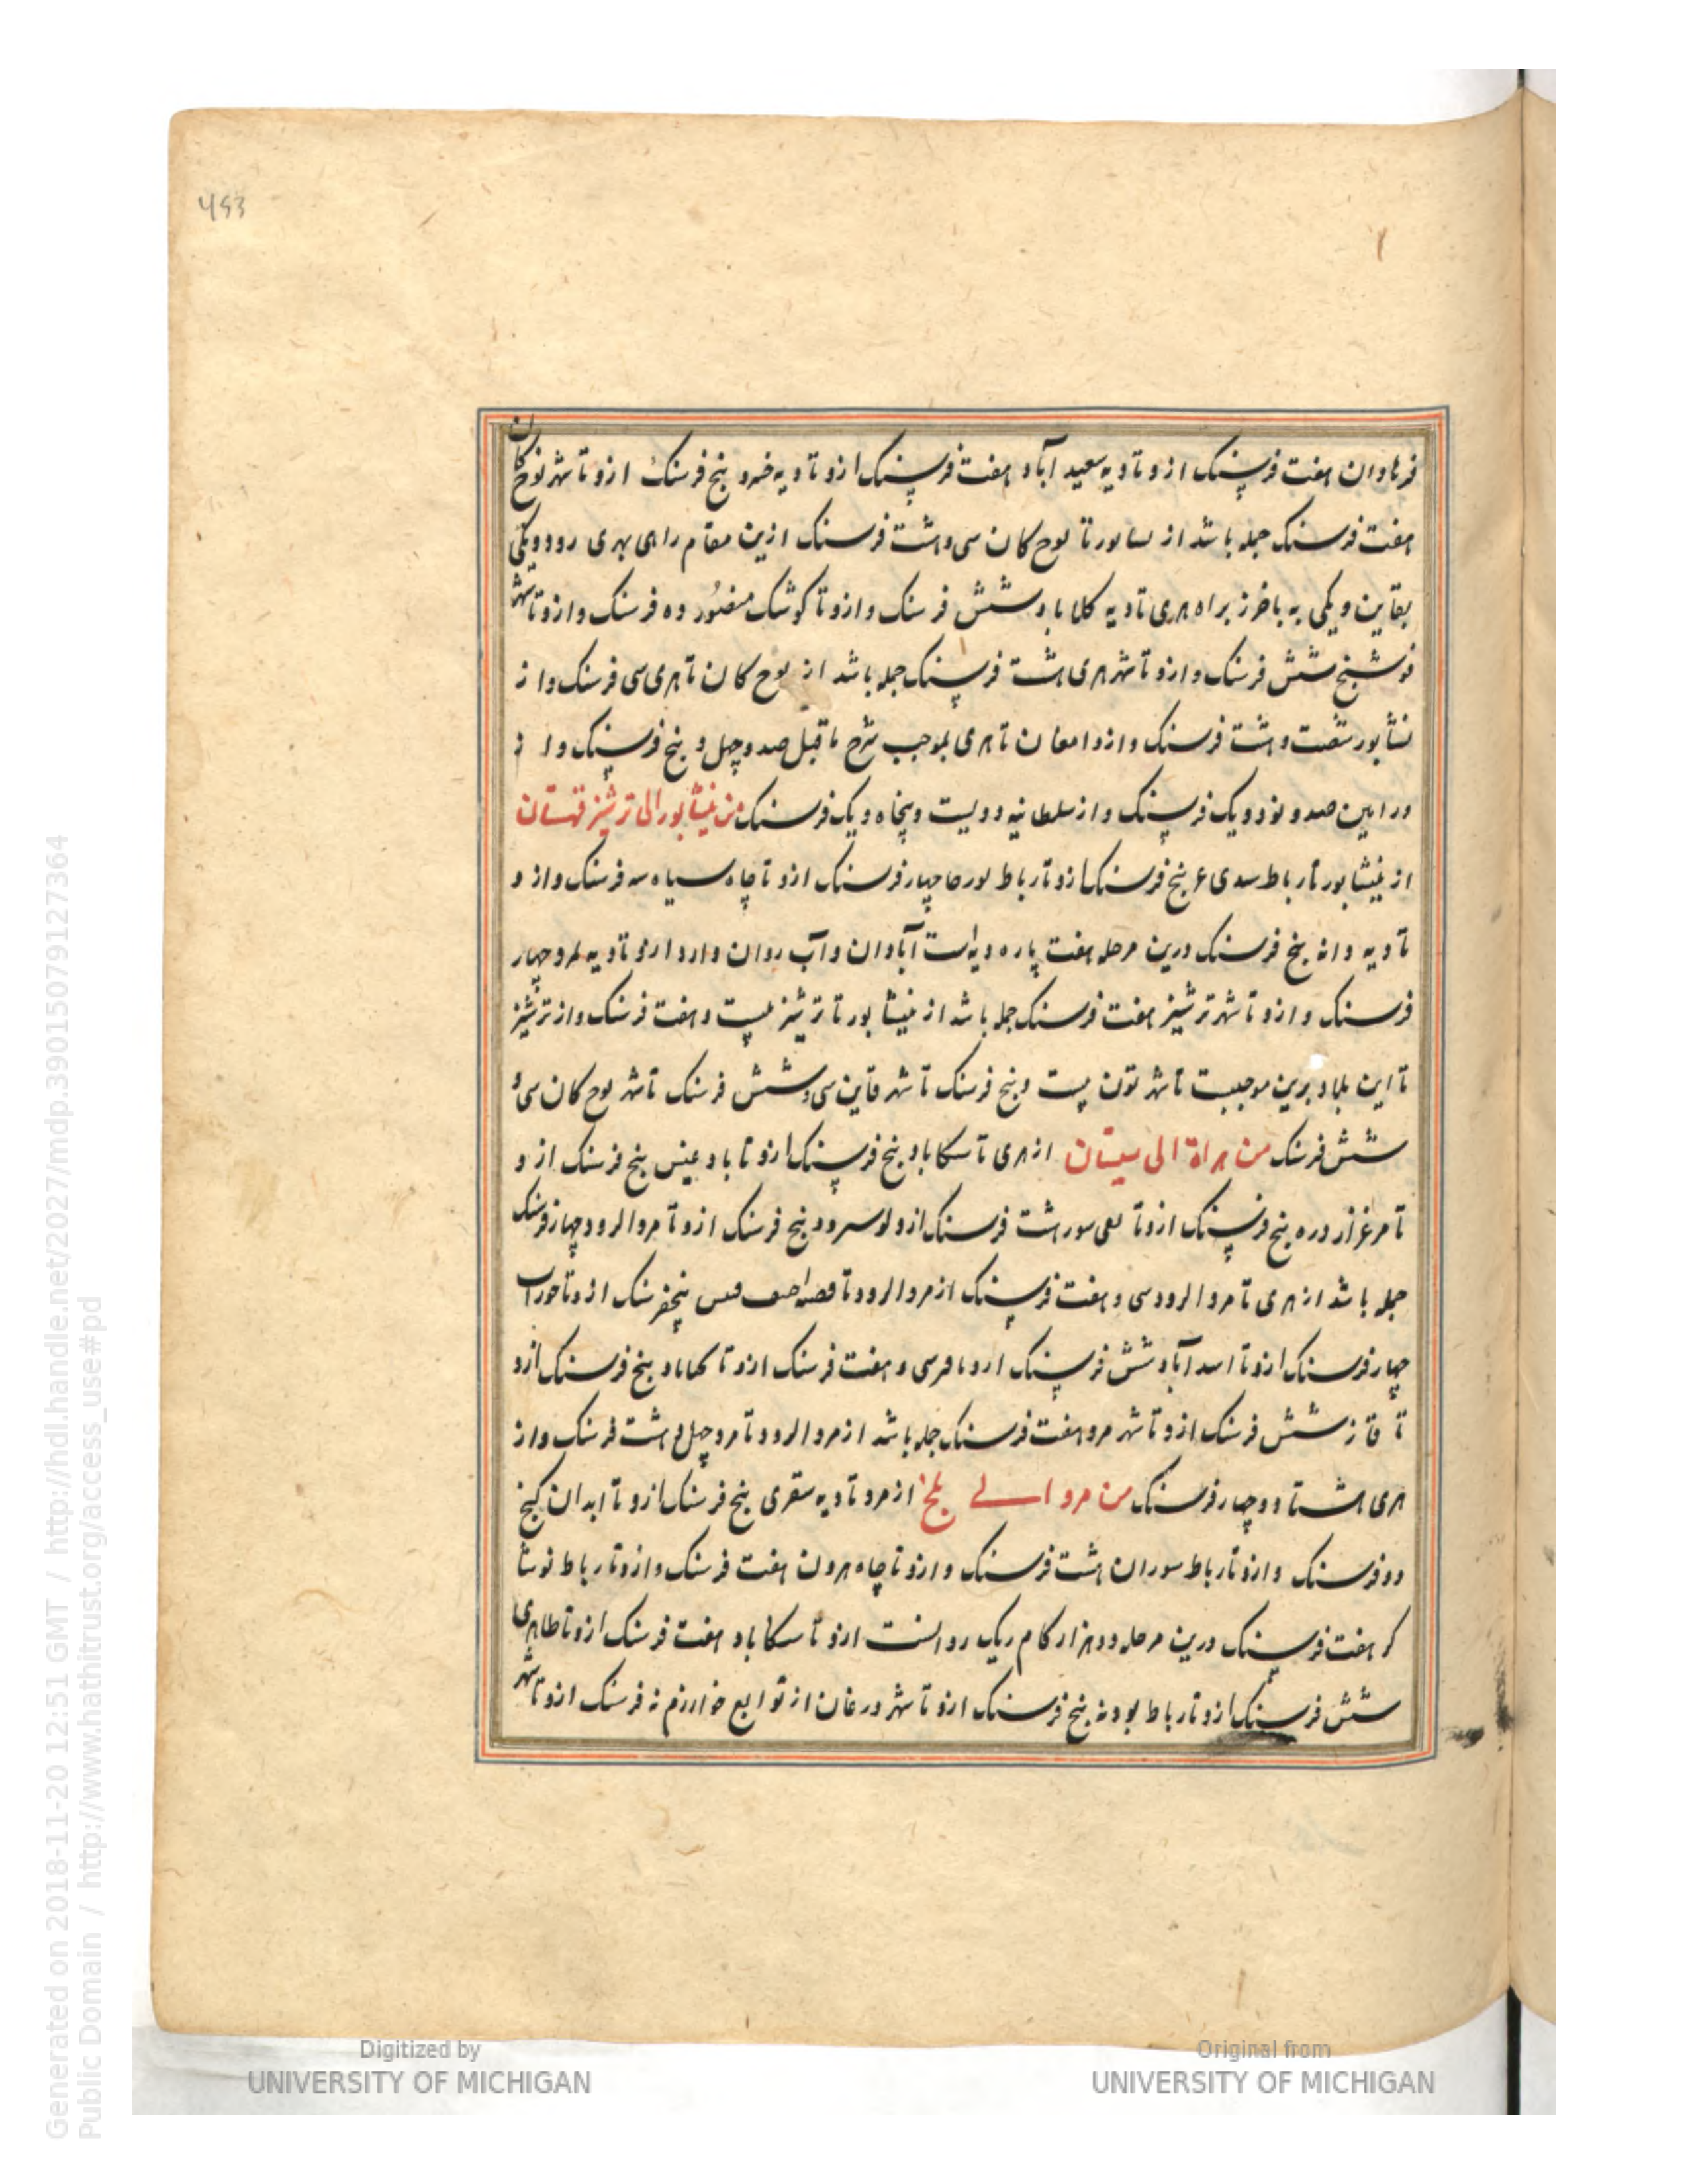 493
فرهادان هفت فرسنک ازو تا دیه سعید آباد هفت فرسنک ازو تا دیه خسرو پنج فرسنک ازو تا شهر نوح کان
هفت فرسنک جمله باشد از نسابور تا بوح کان سی و هشت فرسنک ازین مقام راهی بهری رود و یکی
بقاین و یکی به باخرز براه هری تا دیه کلاباد شش فرسنک و ازو تا کوشک منصور ده فرسنک و ازو تا شهر
فوشنج شش فرسنک و ازو تا شهر هری هشت فرسنک جمله باشد از بوح کان تا هری سی فرسنک و از
نشابور شصت و هشت فرسنک و از دامغان تا هری بموجب شرح ماقبل صد و چهل و پنج فرسنک و از
ورامین صد و نود و یک فرسنک و از سلطانیه دویست و پنجاه و یک فرسنک من نیشابور الی ترشیز قهستان
از نیشابور تا رباط سدی پنج فرسنک ازو تا رباط نورخا چهار فرسنک ازو تا چاه سیاه سه فرسنک و از و
تا دیه دانه پنج فرسنک درین مرحله هفت پاره دیه است آبادان و آب روان دارد ازو تا دیه چهار
فرسنک و ازو تا شهر ترشیز هفت فرسنک جمله باشد از نیشابور تا ترشیز بیست و هفت فرسنک و از ترشیز
تا این بلاد برین موجبست تا شهر تون بیست و پنج فرسنک تا شهر قاین سی و شش فرسنک تا شهر بوح کان سی و
شش فرسنک من هراة الی سیستان از هری تا سکاباد پنج فرسنک ازو تا بادغیس پنج فرسنک از و
تا مرغزار دره پنج فرسنک ازو تا بغی سور هشت فرسنک ازو لوسرود پنج فرسنک ازو تا مروالرود چهار فرسنک
جمله باشد از هری تا مروالرود سی و هفت فرسنک از مروالرود تا قصر احنف قیس پنج فرسنک ازو تا حوراب
چهار فرسنک ازو تا اسدآباد شش فرسنک ازو تا قرسی و هفت فرسنک ازو تا کهاباد پنج فرسنک ازو
تا فاز شش فرسنک ازو تا شهر مرو هفت فرسنک جمله باشد از مروالرود تا مرو چهل و هشت فرسنک و از
هری هشتاد و چهار فرسنک من مرو الی بلخ از مرو تا دیه سقری پنج فرسنک ازو تا ابدان کنج
دو فرسنک و ازو تا رباط سوران هشت فرسنک و ازو تا چاه هرون هفت فرسنک و ازو تا رباط نوشا
کر هفت فرسنک درین مرحله دو هزار کام ریک روانست ازو تا سکاباد هفت فرسنک ازو تا طاهری
شش فرسنک ازو تا رباط بودنه پنج فرسنک ازو تا شهر درغان از توابع خوارزم نه فرسنک ازو تا شهر
Digitized by
UNIVERSITY OF MICHIGAN
Original from
UNIVERSITY OF MICHIGAN
Generated on 2018-11-20 12:51 GMT / http://hdl.handle.net/2027/mdp.39015079127364
Public Domain / http://www.hathitrust.org/access_use#pd